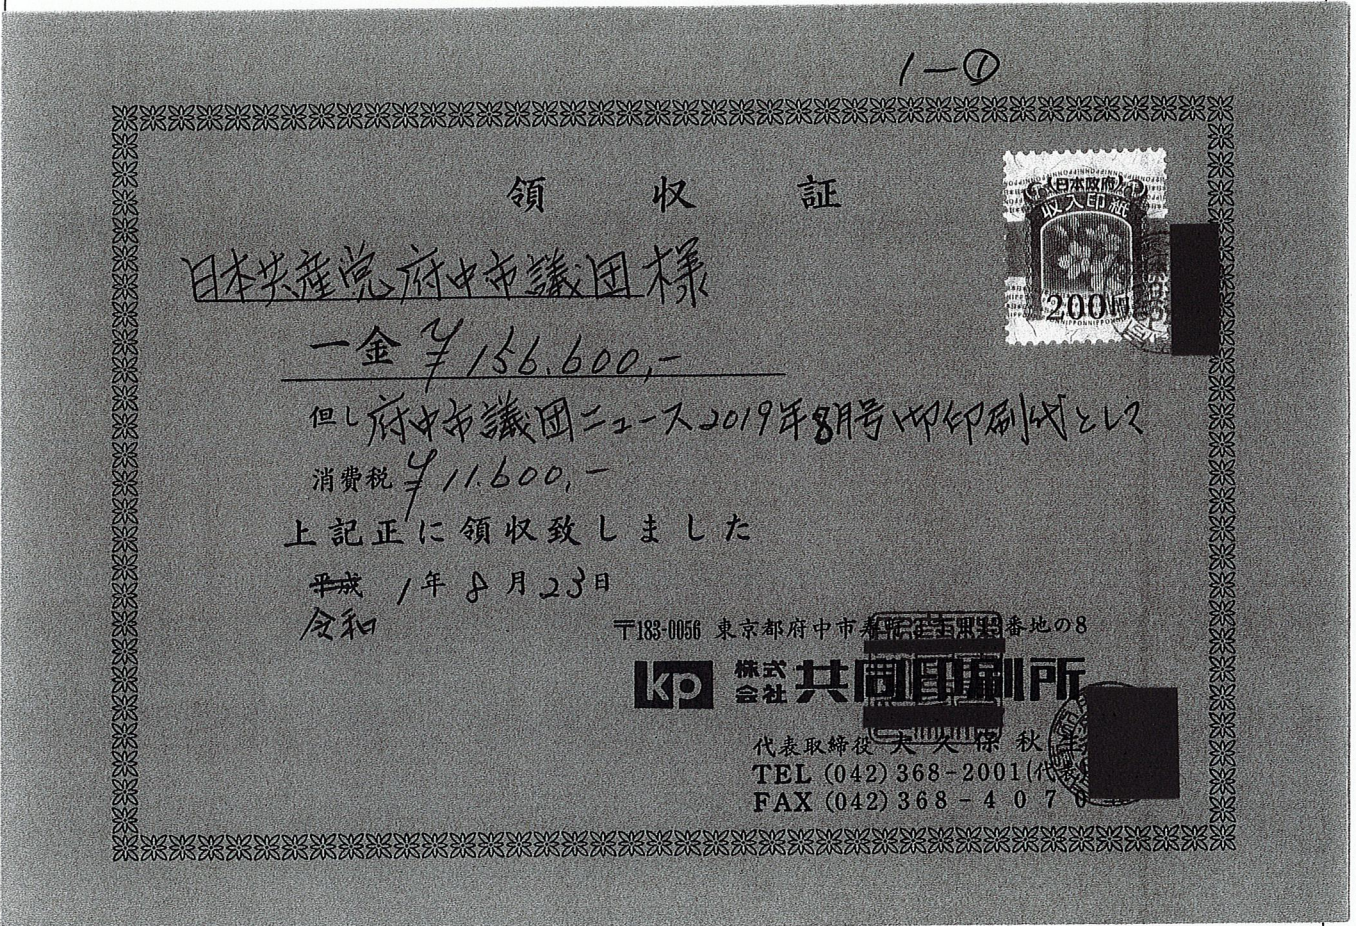 1-①
領収証
日本政府
収入印紙
200円
日本共産党府中市議団様
一金 ¥156.600,-
但し 府中市議団ニュース2019年8月号 印刷代として
消費税 ¥11.600,-
上記正に領収致しました
平成 1年 8月 23日
令和
〒183-0056 東京都府中市寿町 番地の8
kp 株式会社 共同印刷所
代表取締役 大久保秋生
TEL (042) 368-2001(代表)
FAX (042) 368-4070